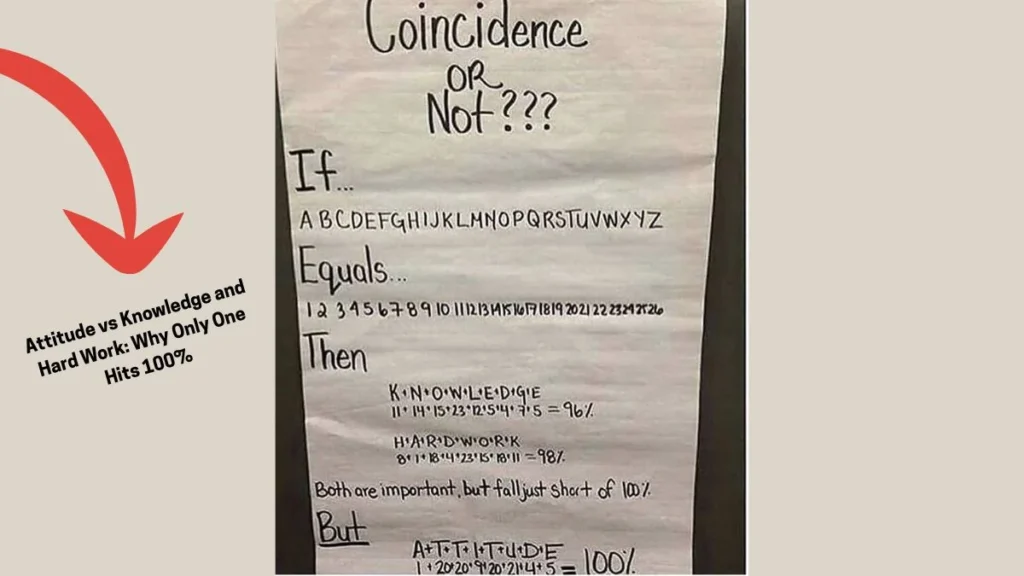 Coincidence
OR
Not???
If...
A B C D E F G H I J K L M N O P Q R S T U V W X Y Z
Equals...
1 2 3 4 5 6 7 8 9 10 11 12 13 14 15 16 17 18 19 20 21 22 23 24 25 26
Then
K+N+O+W+L+E+D+G+E
11+14+15+23+12+5+4+7+5=96%
H+A+R+D+W+O+R+K
8+1+18+4+23+15+18+11=98%
Both are important, but fall just short of 100%
But
A+T+T+I+T+U+D+E
1+20+20+9+20+21+4+5=100%
Attitude vs Knowledge and
Hard Work: Why Only One
Hits 100%